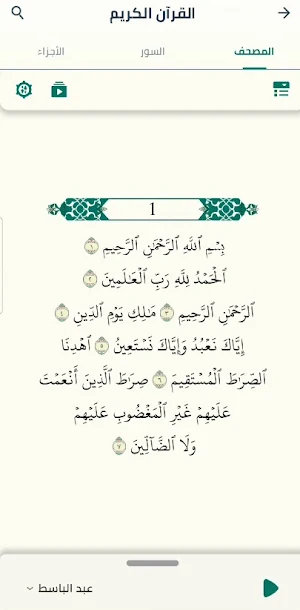 القرآن الكريم
المصحف السور الأجزاء
1
بِسْمِ ٱللَّهِ ٱلرَّحْمَٰنِ ٱلرَّحِيمِ ١
ٱلْحَمْدُ لِلَّهِ رَبِّ ٱلْعَٰلَمِينَ ٢
ٱلرَّحْمَٰنِ ٱلرَّحِيمِ ٣ مَٰلِكِ يَوْمِ ٱلدِّينِ ٤
إِيَّاكَ نَعْبُدُ وَإِيَّاكَ نَسْتَعِينُ ٥ ٱهْدِنَا
ٱلصِّرَٰطَ ٱلْمُسْتَقِيمَ ٦ صِرَٰطَ ٱلَّذِينَ أَنْعَمْتَ
عَلَيْهِمْ غَيْرِ ٱلْمَغْضُوبِ عَلَيْهِمْ
وَلَا ٱلضَّآلِّينَ ٧
عبد الباسط